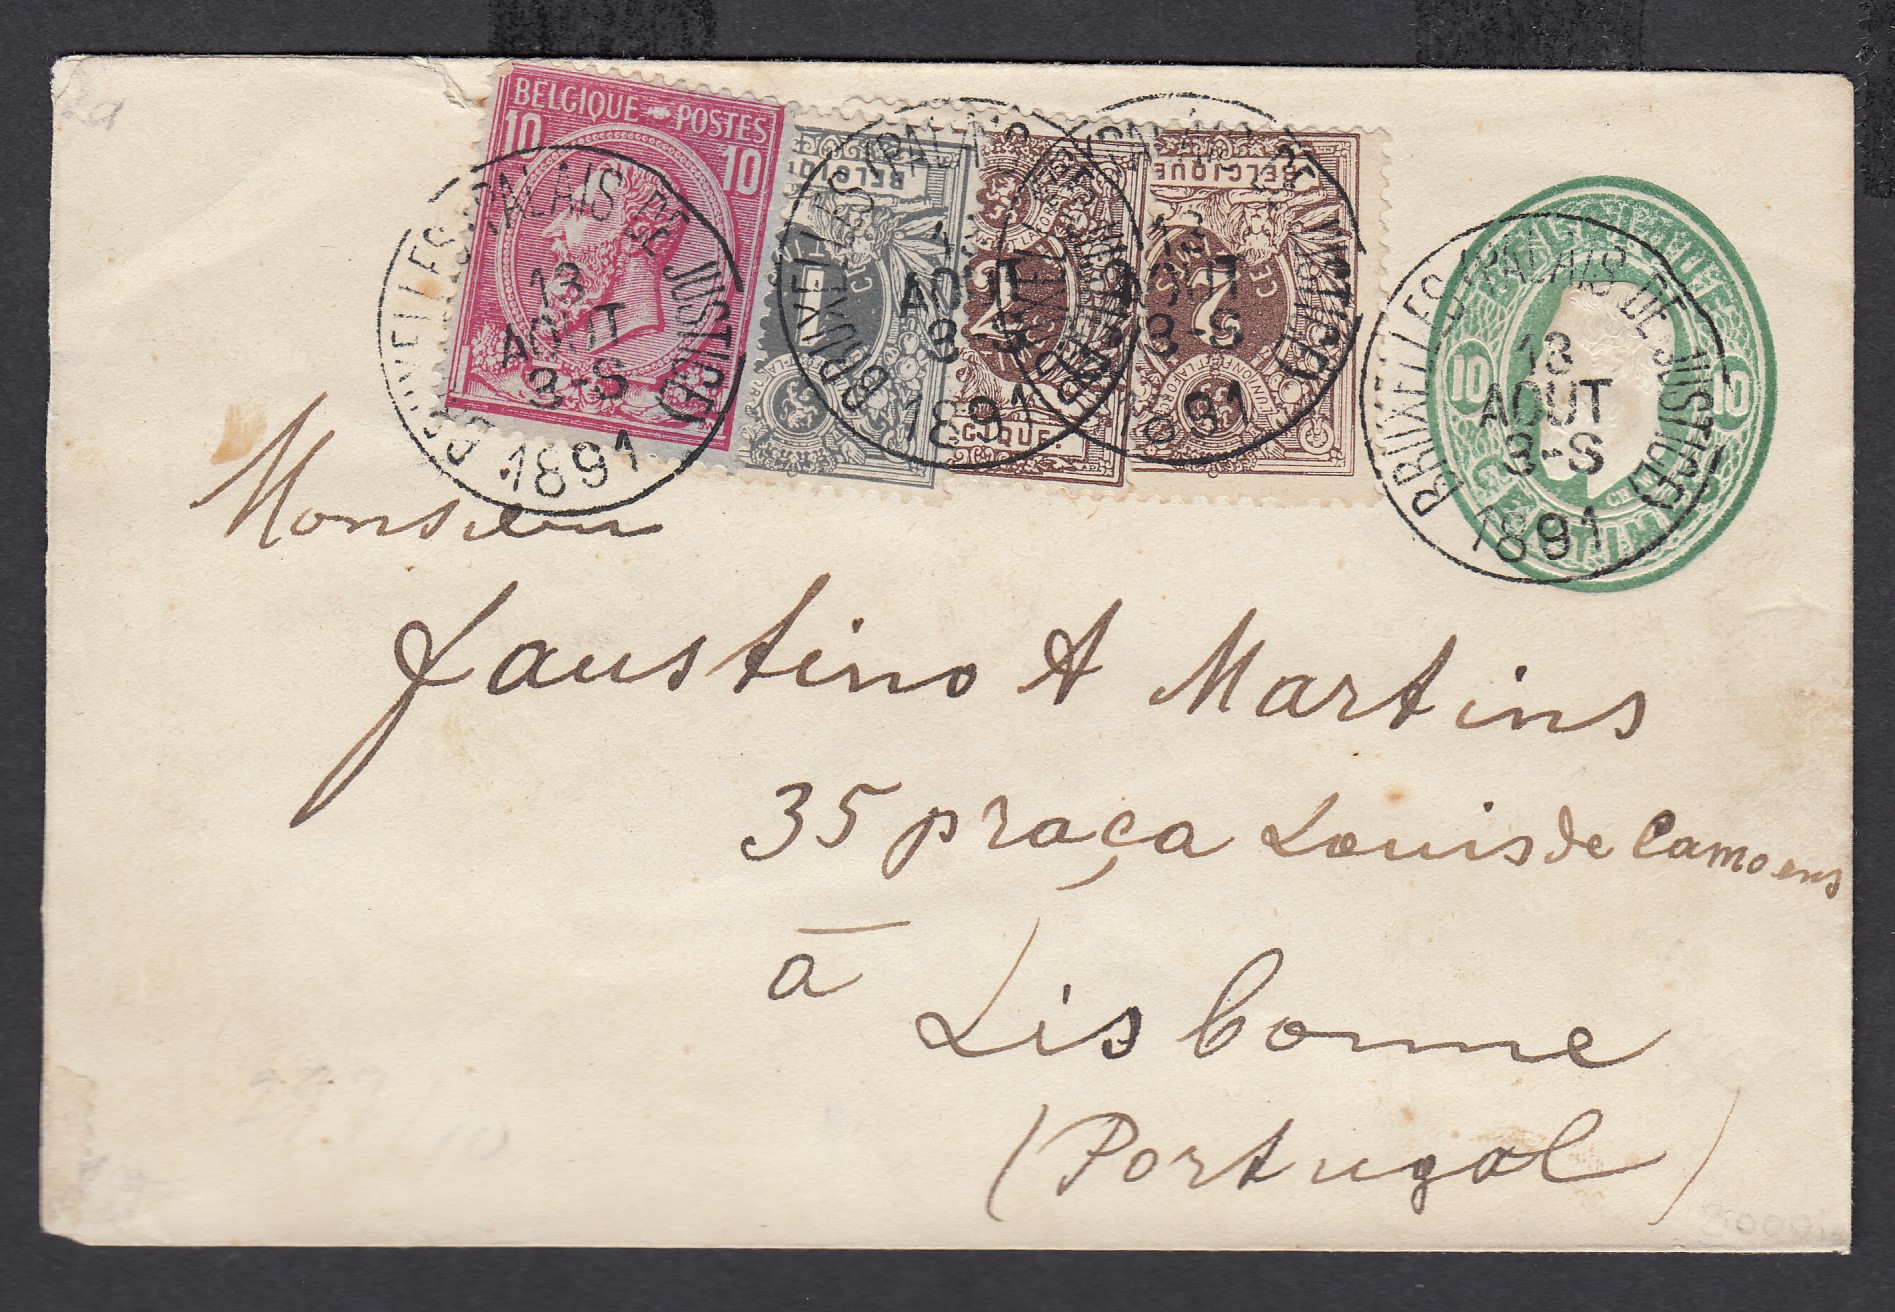 BELGIQUE POSTES
10 10
BRUXELLES (PALAIS DE JUSTICE)
13
AOUT
8-S
1891
BELGIQUE
1
BRUXELLES (PALAIS
AOUT
8-S
1891
2
BELGIQUE
2
13
AOUT
8-S
1891
BELGIQUE
10 10
BRUXELLES (PALAIS DE JUSTICE)
13
AOUT
8-S
1891
Monsieur
Faustino A Martins
35 praça Louis de Camoens
à
Lisbonne
(Portugal)